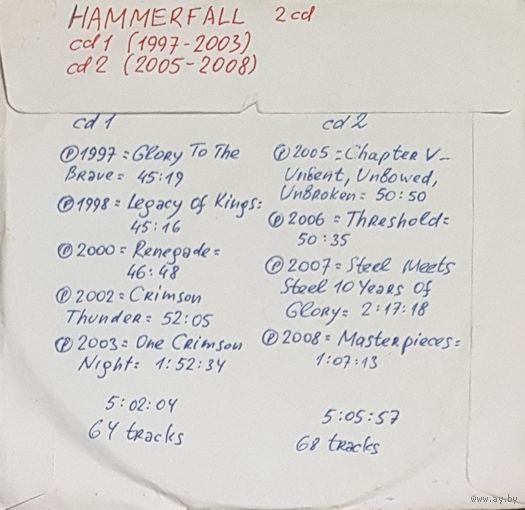 HAMMERFALL 2cd
cd 1 (1997-2003)
cd 2 (2005-2008)
cd 1
℗1997 = Glory To The
Brave = 45:19
℗1998 = Legacy Of Kings:
45:16
℗2000 = Renegade =
46:48
℗2002 = Crimson
Thunder = 52:05
℗2003 = One Crimson
Night = 1:52:34
5:02:04
64 tracks
cd 2
℗2005 = Chapter V–
Unbent, Unbowed,
Unbroken = 50:50
℗2006 = Threshold =
50:35
℗2007 = Steel Meets
Steel 10 Years Of
Glory = 2:17:18
℗2008 = Masterpieces =
1:07:13
5:05:57
68 tracks
www.ay.by